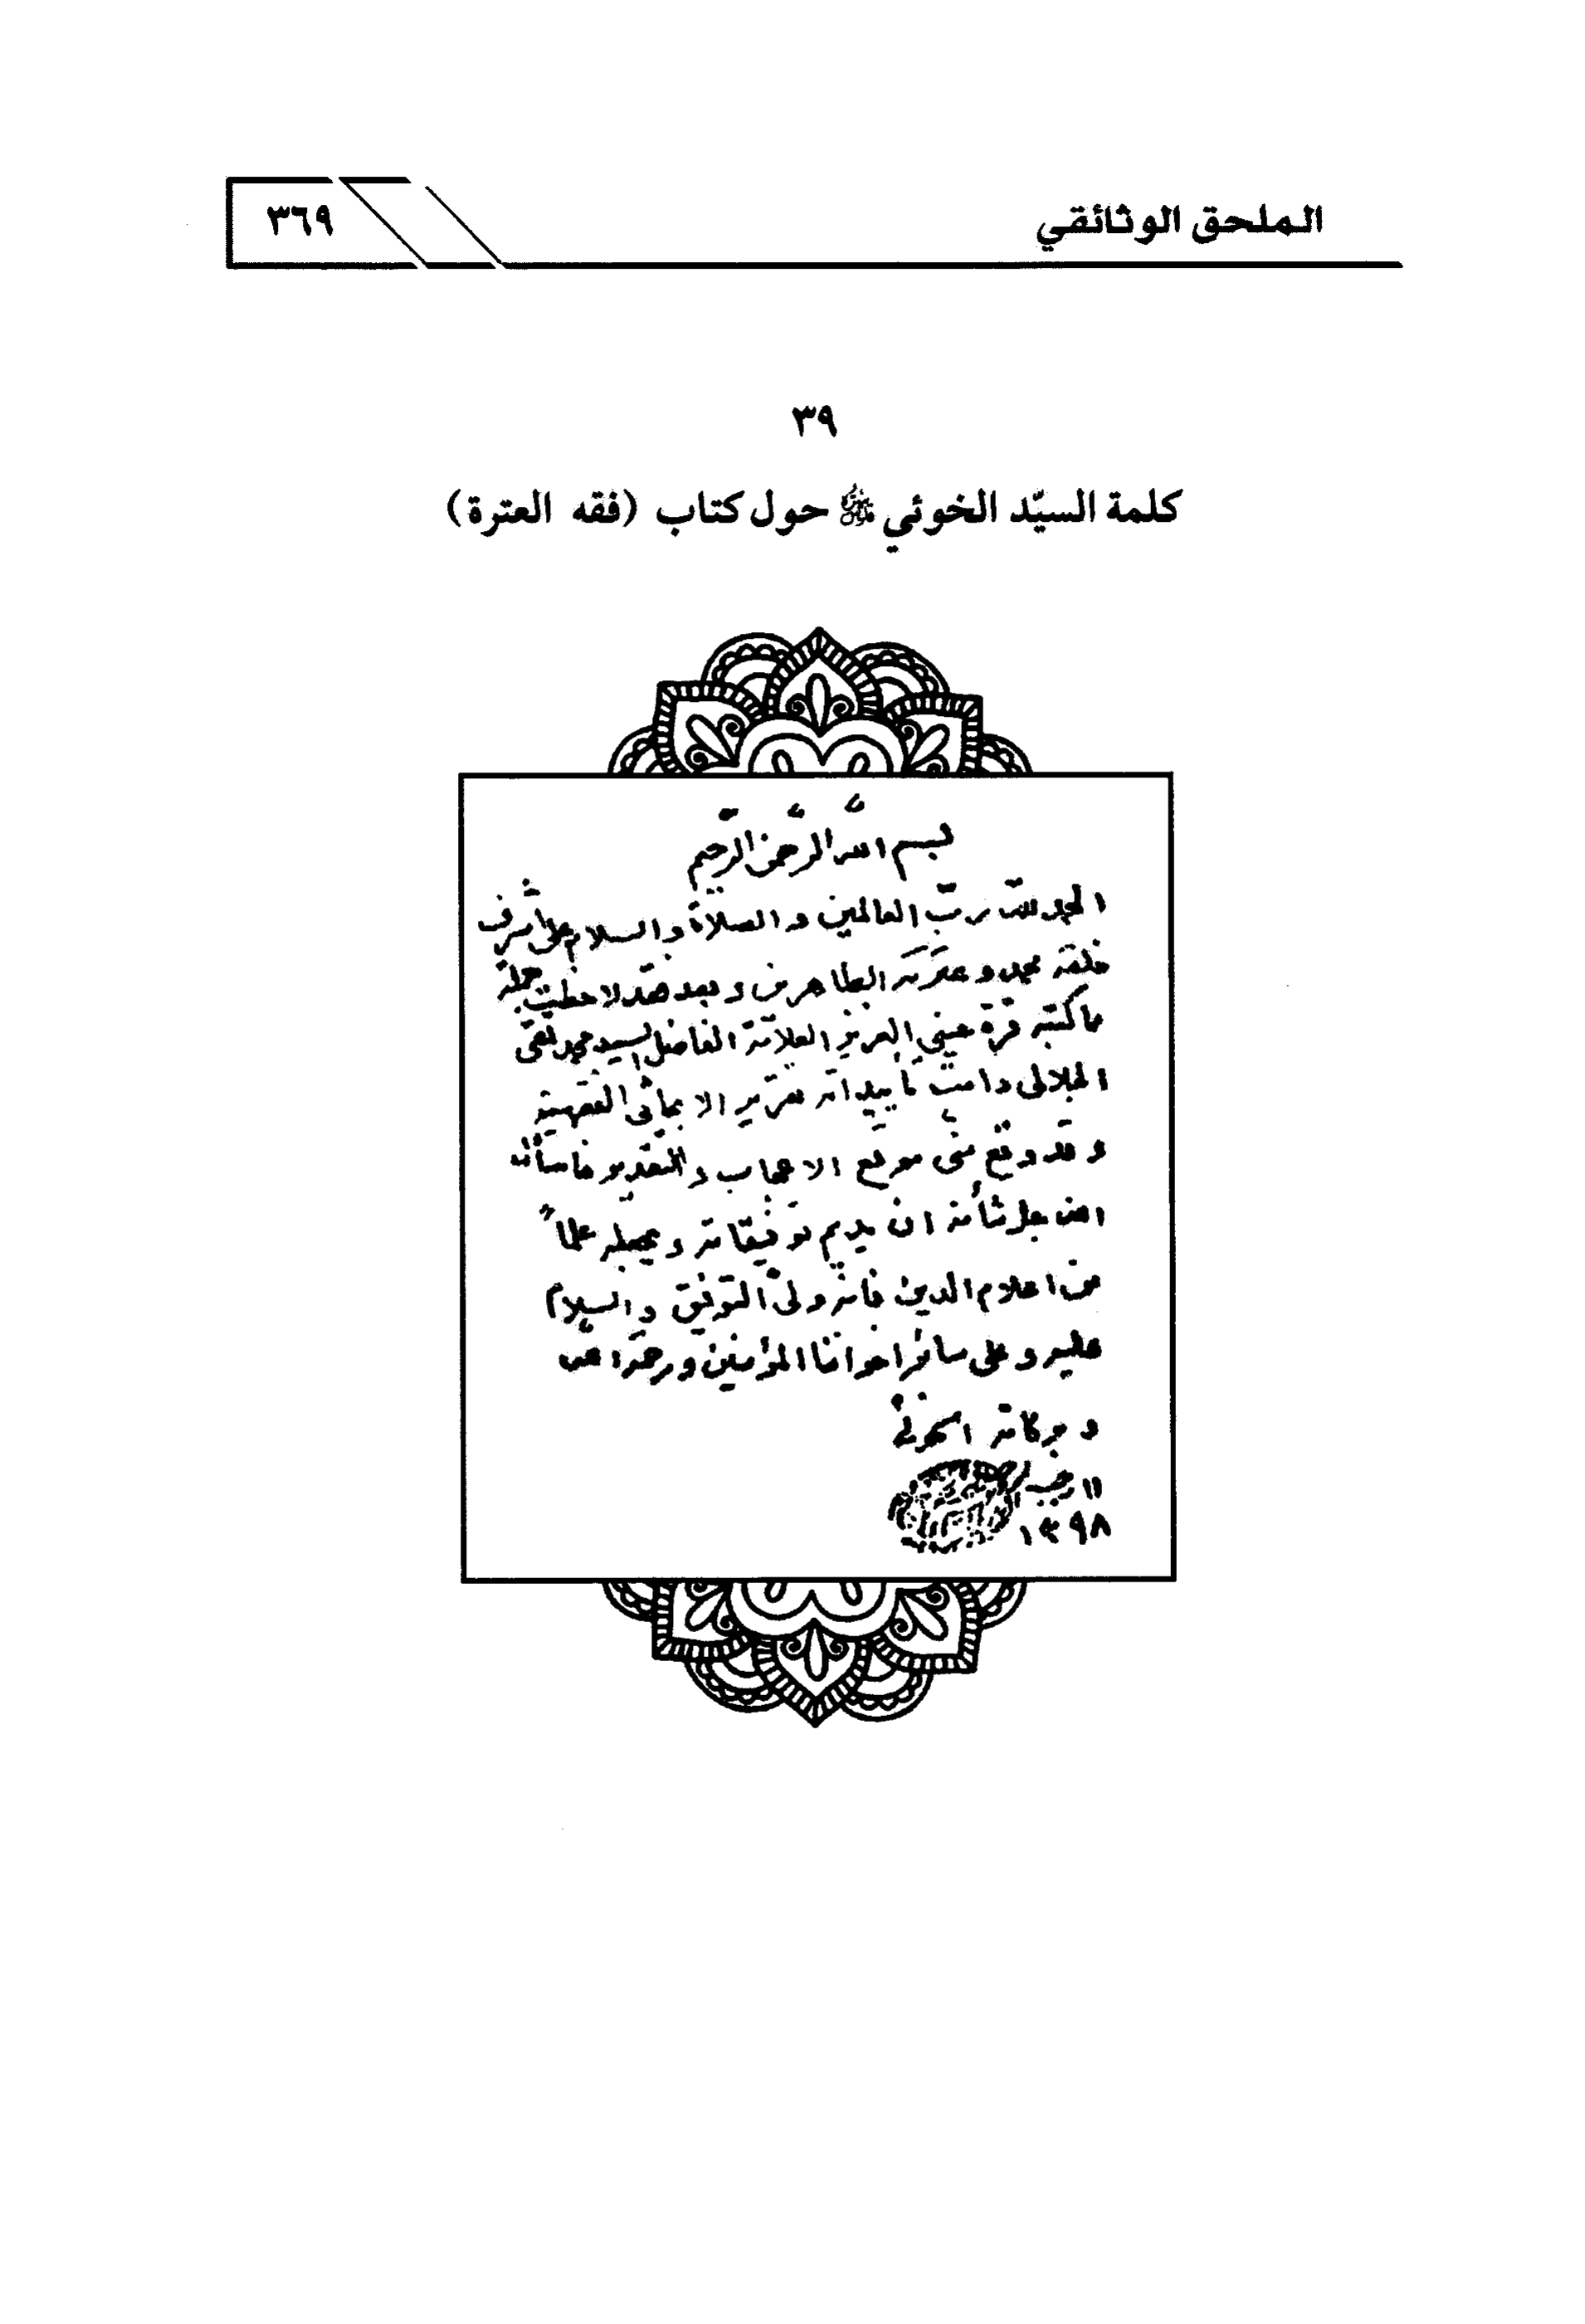 الملحق الوثائقي
٣٦٩
٣٩
كلمة السيّد الخوئي قدس سره حول كتاب (فقه العترة)
بسم الله الرحمن الرحيم
الحمد لله ربّ العالمين والصلاة والسلام على اشرف
خلقه محمد وعترته الطاهرين وبعد فقد لاحظت جملة
مما كتبه قرة عيني العزيز العلامة الفاضل السيد محمد تقي
الجلالي دامت تأييداته تقرير الابحاثى الفقهية
وقد وقع منى موقع الاعجاب والتقدير فاسأل
الله جل شأنه ان يديم توفيقاته ويجعله علماً
من اعلام الدين فانه ولى التوفيق والسلام
عليه وعلى سائر اخواننا المؤمنين ورحمة الله
وبركاته الخوئي
١١ رجب
١٣٩٨